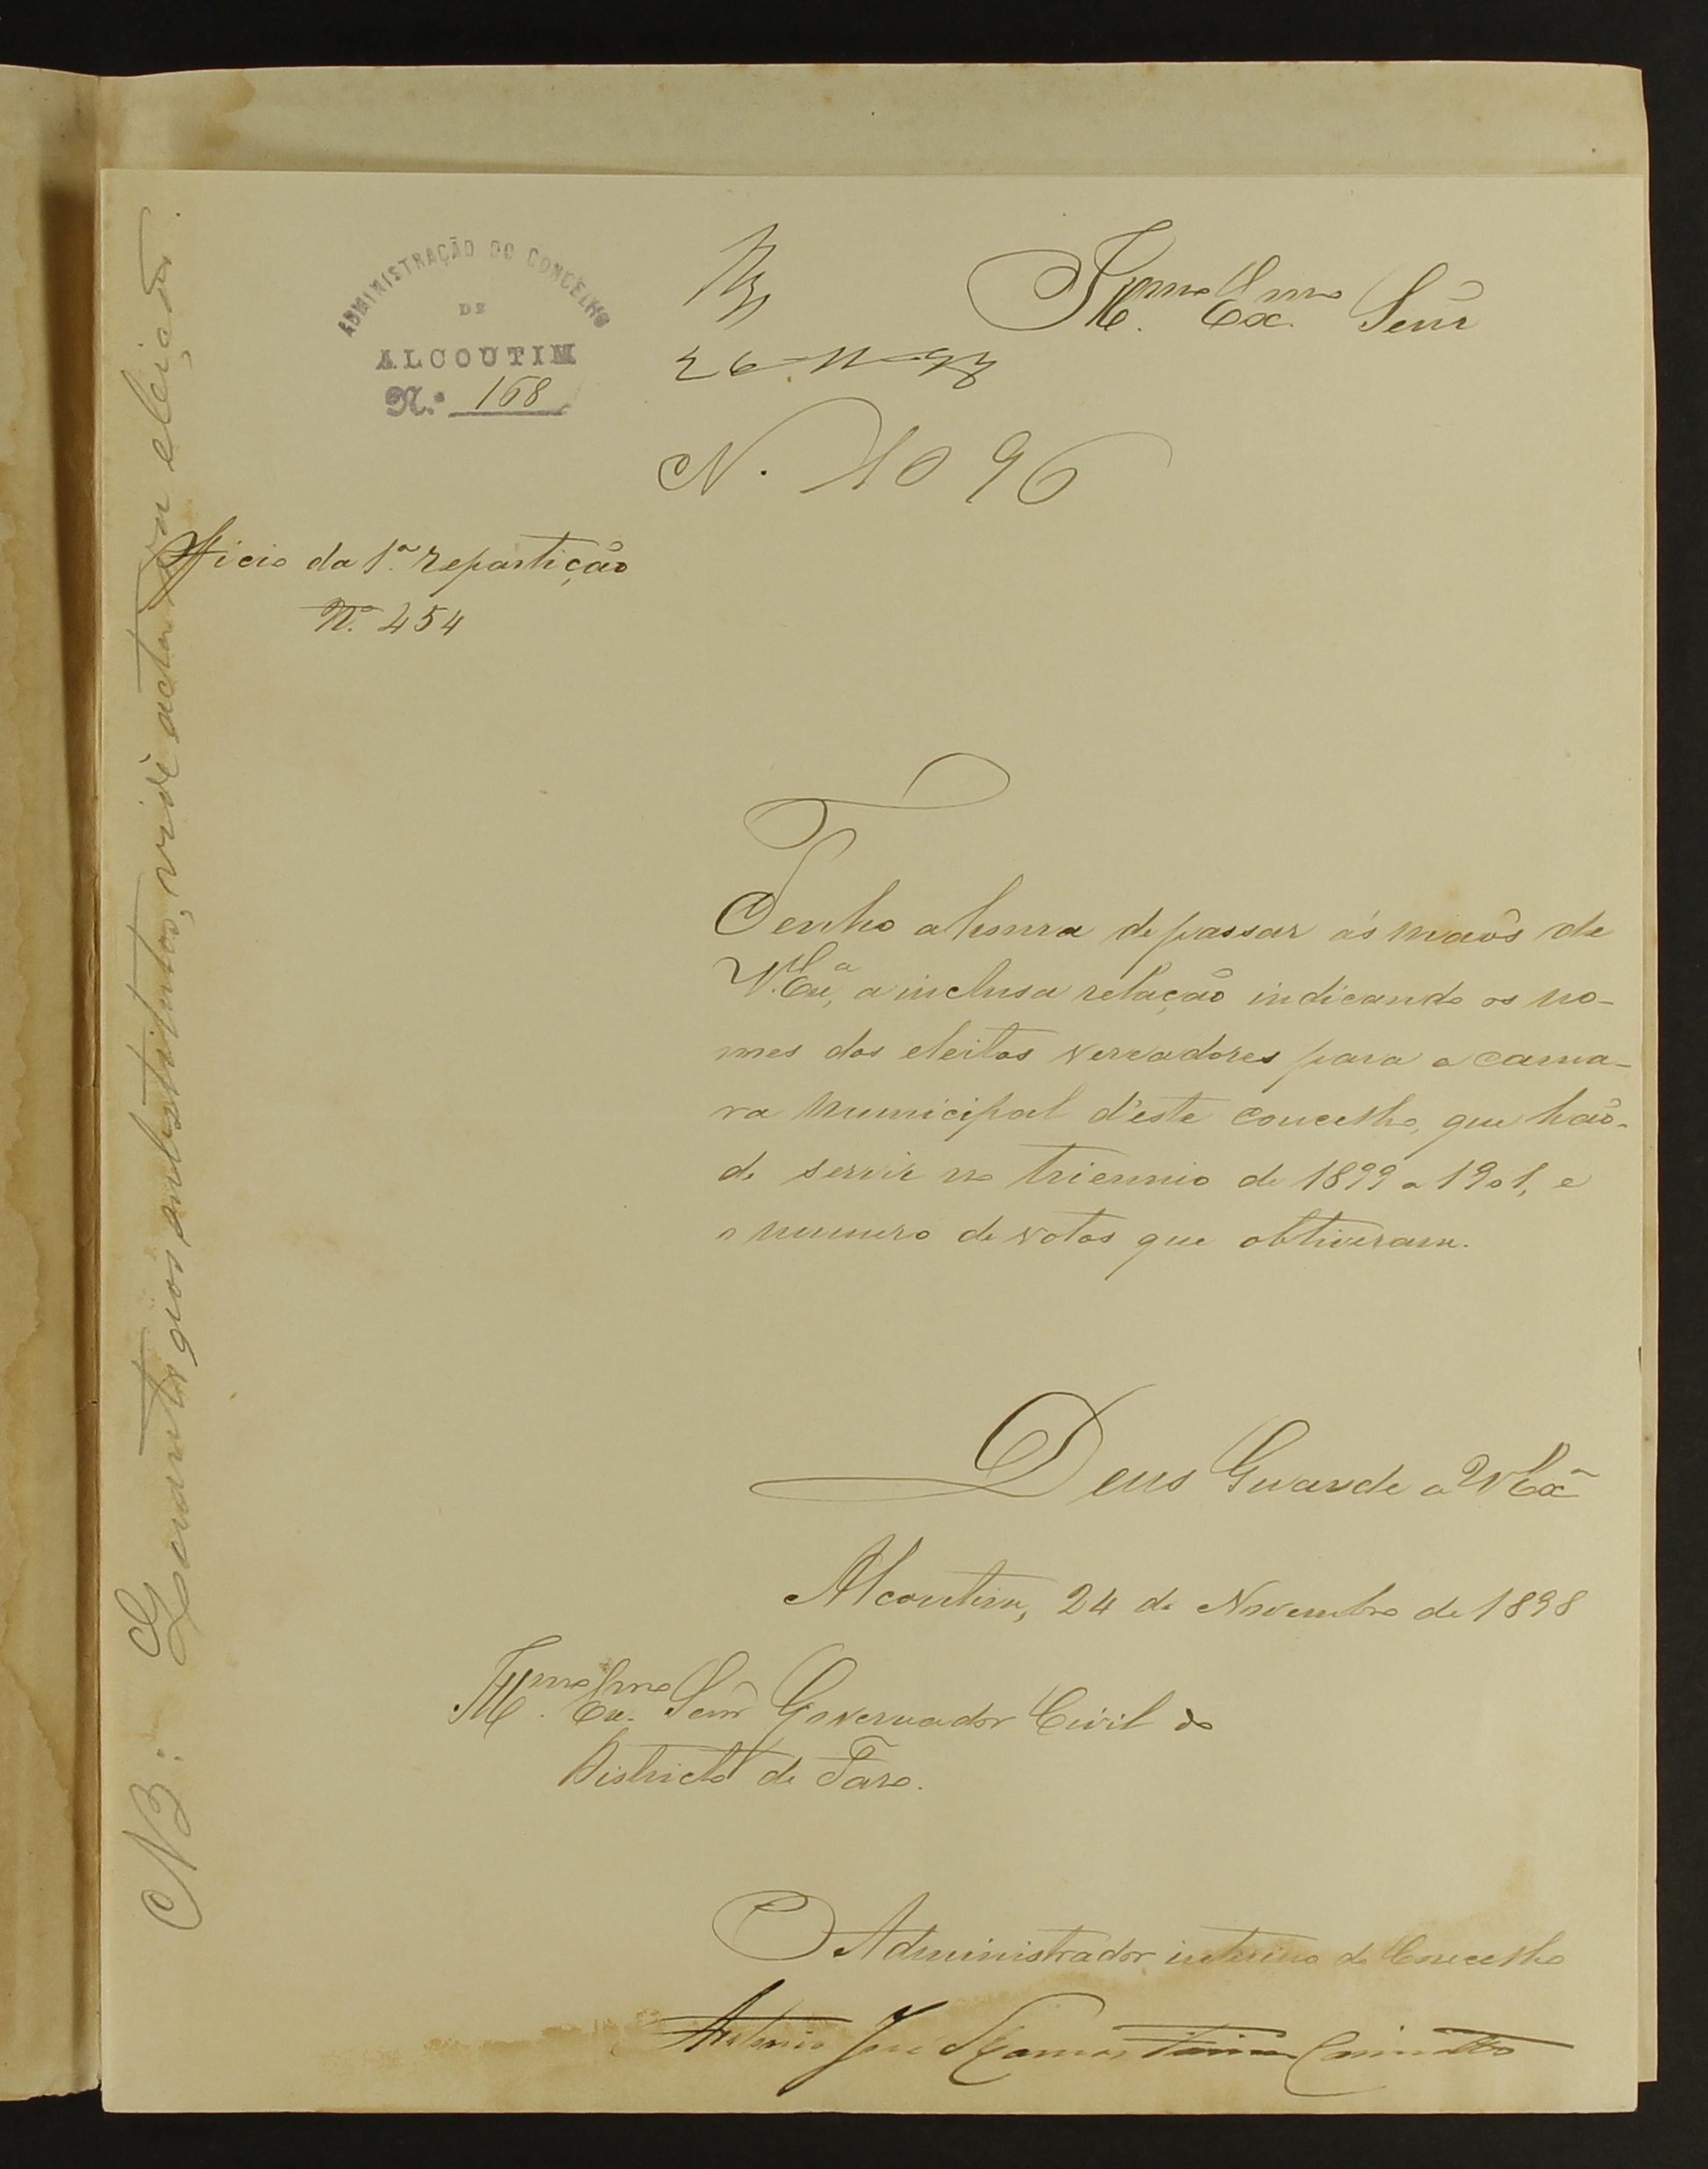 ADMINISTRAÇÃO DO CONCELHO
DE
ALCOUTIM
N.º 168
26-11-98
N. 1096
Illmo. Exmo. Senr
Officio da 1.ª repartição
N.º 254
Tenho a honra de passar ás maõs de
V. Exª, a inclusa relação indicando os no-
mes dos eleitos vereadores para a cama-
ra Municipal d'este concelho, que haõ-
de servir no triennio de 1899 a 1901, e
o numero de votos que obtiveram.
Deus Guarde a V Exª
Alcoutim, 24 de Novembro de 1898
Illmo. Exmo. Senr Governador Civil do
Districto de Faro.
O Administrador interino do Concelho
Antonio José Ramos Faria
NB: quaes substitutos, vide acta da eleição.